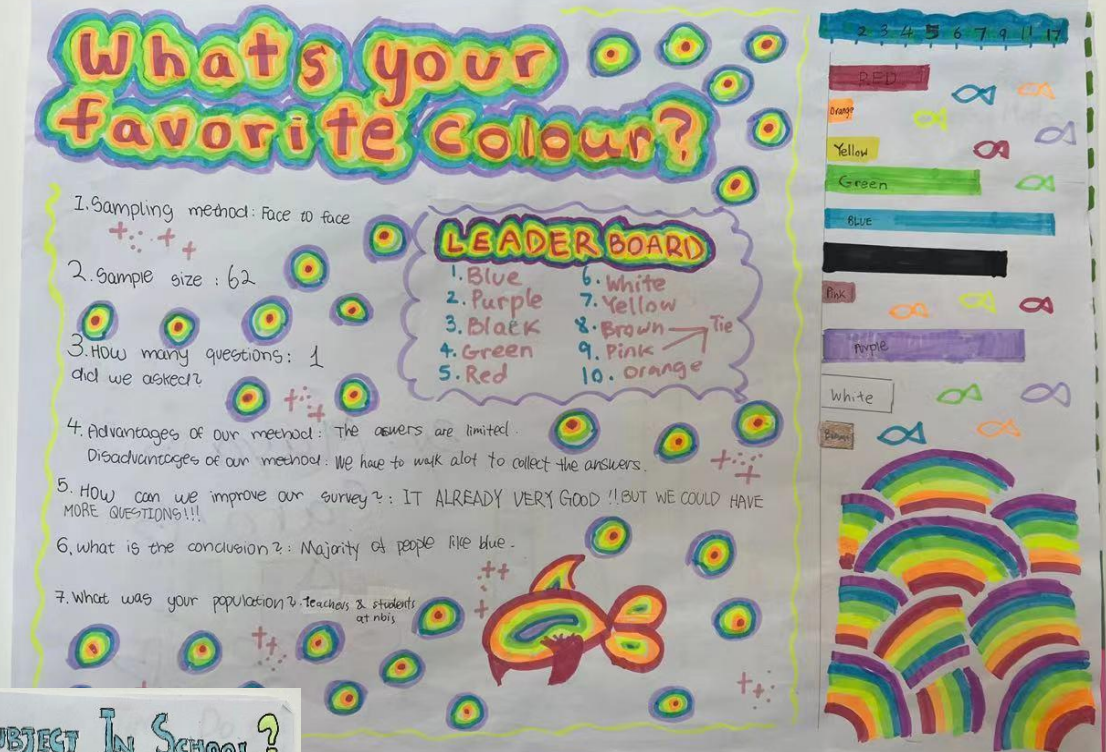 Whats your
favorite colour?
1. Sampling method: Face to face
2. Sample size : 62
3. How many questions: 1
did we asked?
4. Advantages of our method: The aswers are limited.
Disadvantages of our method: We have to walk alot to collect the answers.
5. How can we improve our survey?: IT ALREADY VERY GOOD!! BUT WE COULD HAVE
MORE QUESTIONS!!!
6. what is the conclusion?: Majority of people like blue.
7. What was your population?. teachers & students
at nbis
LEADER BOARD
1. Blue
2. Purple
3. Black
4. Green
5. Red
6. White
7. Yellow
8. Brown
9. Pink
Tie
10. orange
2 3 4 5 6 7 9 11 17
RED
Orange
Yellow
Green
BLUE
Pink
Purple
White
SUBJECT IN SCHOOL?